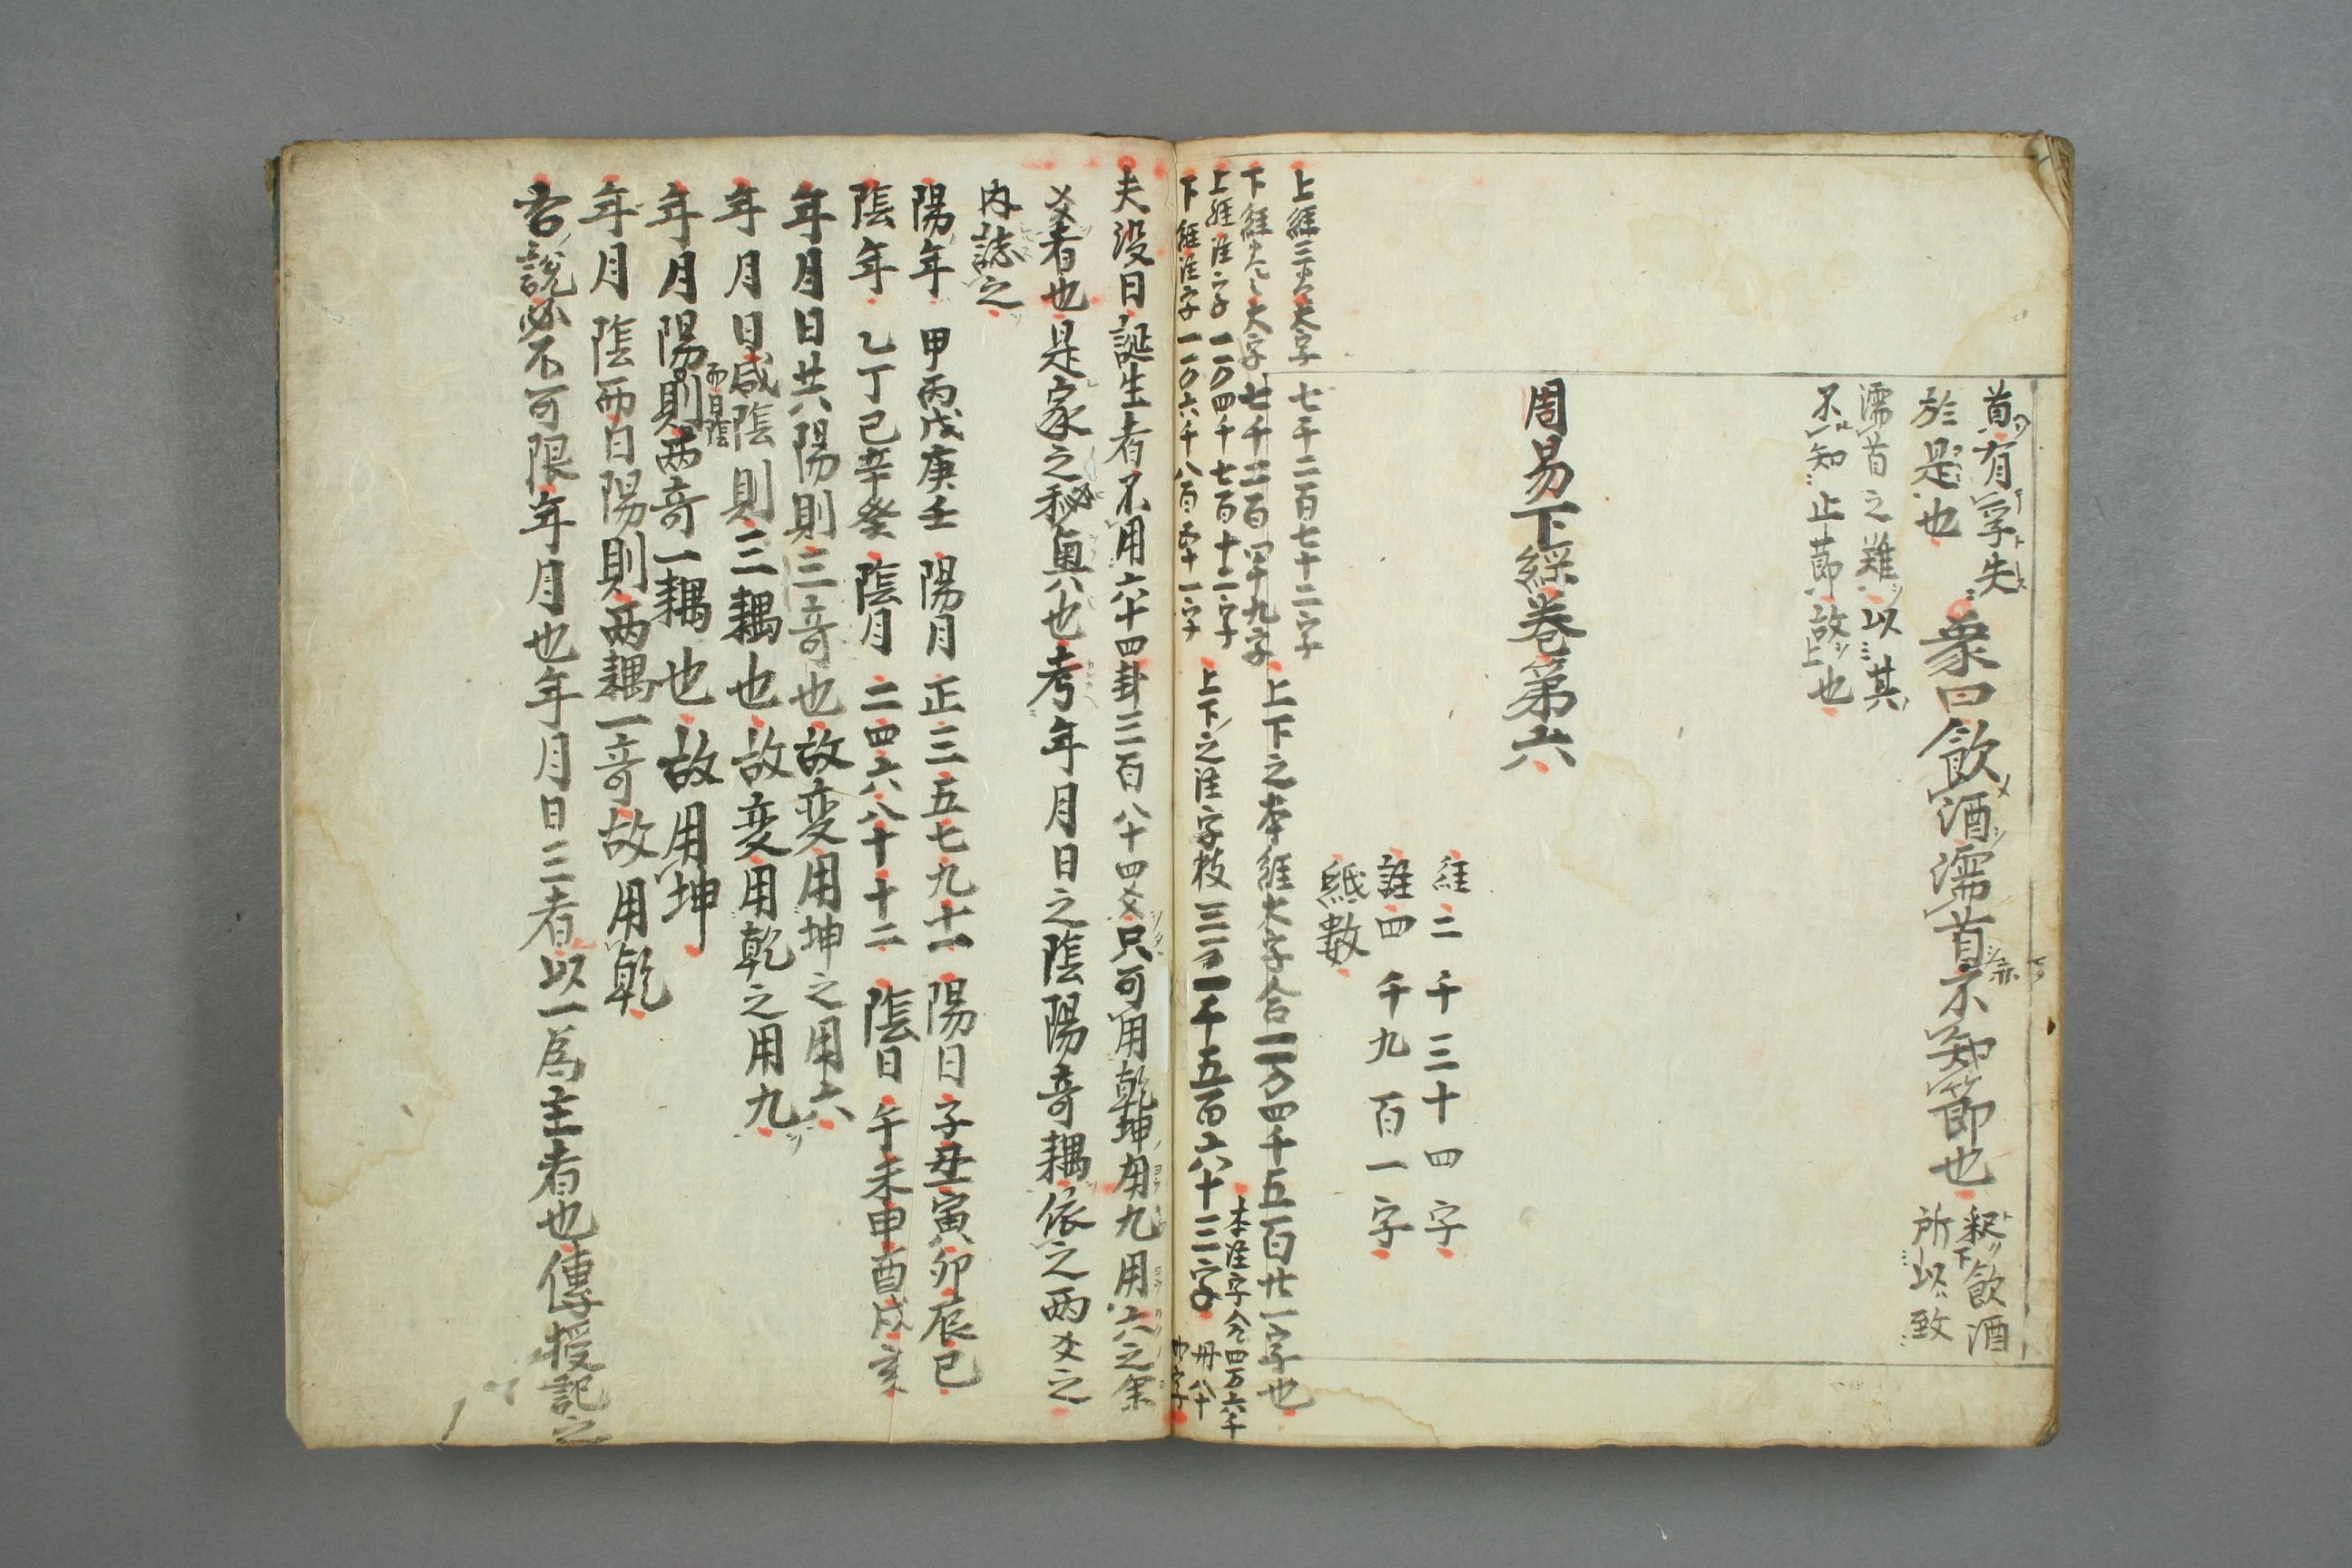 首有孚失
於是也
象曰飲酒濡首亦不知節也
釈飲酒
所以致
濡首之難以其
不知止節故也
周易下経巻第六
経二千三十四字
註四千九百一字
紙數
上經三十大字 七千二百七十二字
下經 大字 七千二百四十九字
上下之本經大字合一万四千五百廿一字也
上經注字一万四千七百十二字
下經注字一万六千八百五十一字
上下之注字枚三万一千五百六十三字
本注字合四万六千
夫没日誕生者不用六十四卦三百八十四爻只可用乾坤用九用六之余
爻者也是家之秘奥也考年月日之陰陽奇耦依之両爻之
内誌之
陽年 甲丙戊庚壬 陽月 正三五七九十一 陽日 子丑寅卯辰巳
陰年 乙丁己辛癸 陰月 二四六八十十二 陰日 午未申酉戌亥
年月日共陽則三奇也故変用坤之用六
年月日咸陰則三耦也故変用乾之用九
年月陽而日陰則両奇一耦也故用坤
年月陰而日陽則両耦一奇故用乾
右説必不可限年月也年月日三者以一為主者也傳授記之